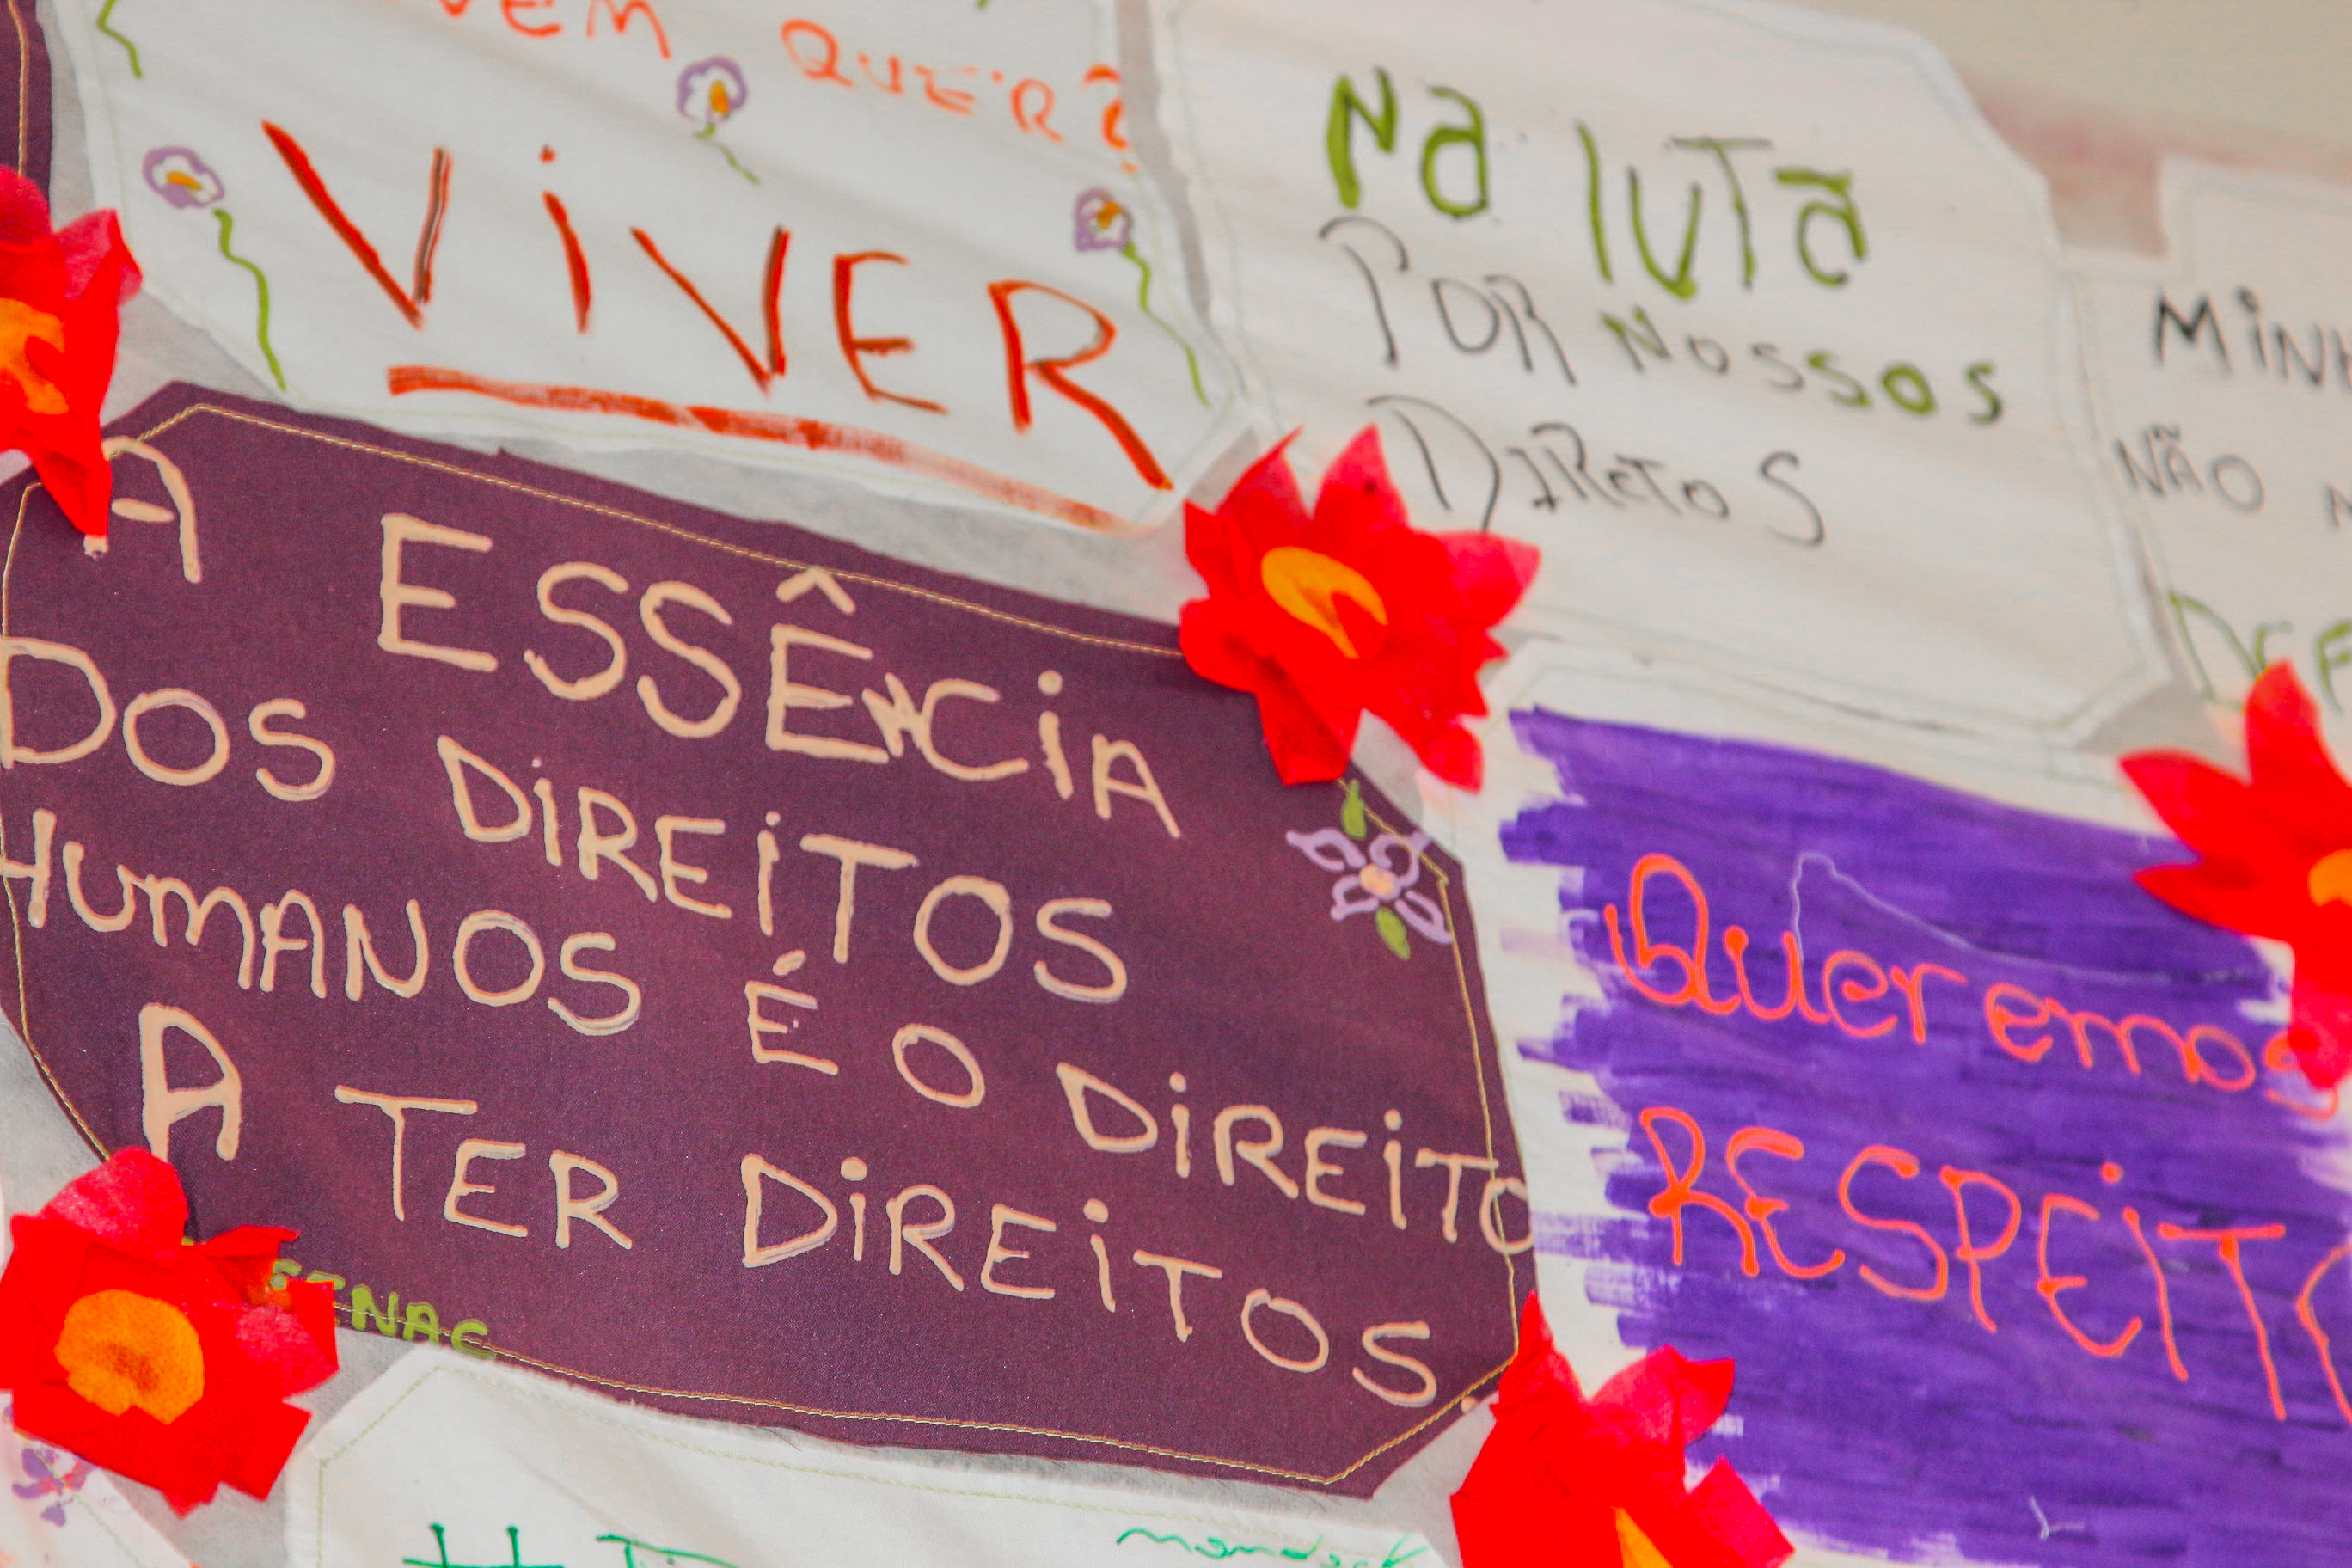 QUER?
VIVER
Na luTa
POR NOSSOS
DIReTOS
NÃO
A ESSÊNCIA
DOS DIREITOS
HUMANOS É O DIREITO
A TER DIREITOS
SENAC
Queremos
RESPEITO